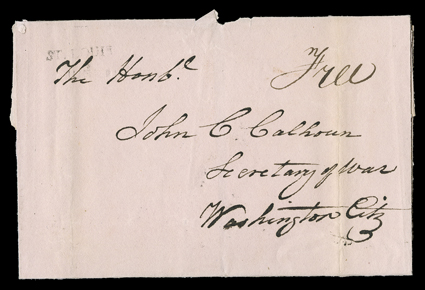 The Honbe. Free
John C. Calhoun
Secretary of War
Washington City